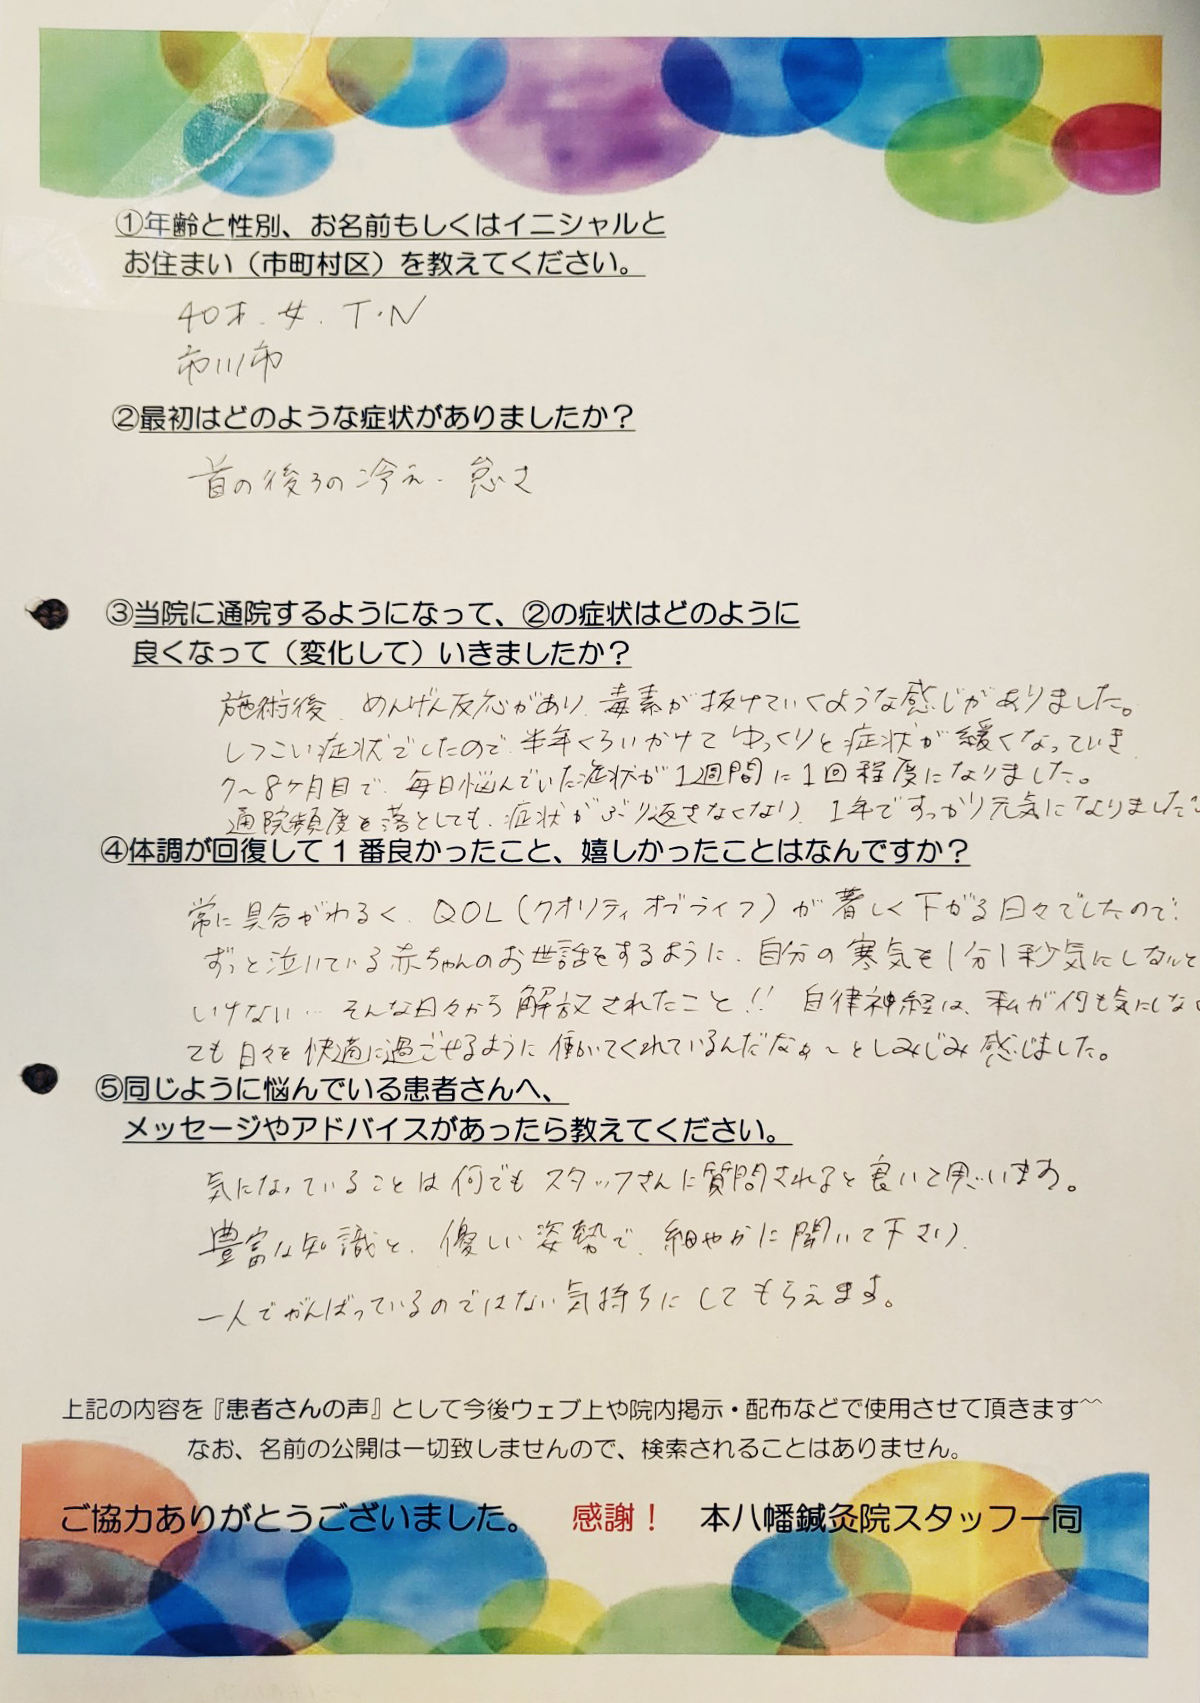 ①年齢と性別、お名前もしくはイニシャルと
お住まい（市町村区）を教えてください。
40才.女.T.N
市川市
②最初はどのような症状がありましたか？
首の後ろの冷え.怠さ
③当院に通院するようになって、②の症状はどのように
良くなって（変化して）いきましたか？
施術後、めんげん反応があり、毒素が抜けていくような感じがありました。
しつこい症状でしたので、半年くらいかけてゆっくりと症状が緩くなっていき、
7〜8ヶ月目で、毎日悩んでいた症状が1週間に1回程度になりました。
通院頻度を落としても、症状がぶり返さなくなり、1年ですっかり元気になりました
④体調が回復して1番良かったこと、嬉しかったことはなんですか？
常に具合がわるく、QOL（クオリティオブライフ）が著しく下がる日々でしたので、
ずっと泣いている赤ちゃんのお世話をするように、自分の寒気を1分1秒気にしないと
いけない…そんな日々から解放されたこと!! 自律神経は、私が何も気にしなく
ても日々を快適に過ごせるように働いてくれているんだなぁ〜としみじみ感じました。
⑤同じように悩んでいる患者さんへ、
メッセージやアドバイスがあったら教えてください。
気になっていることは何でもスタッフさんに質問されると良いと思います。
豊富な知識と、優しい姿勢で、細やかに聞いて下さり、
一人でがんばっているのではない気持ちにしてもらえます。
上記の内容を『患者さんの声』として今後ウェブ上や院内掲示・配布などで使用させて頂きます^^
なお、名前の公開は一切致しませんので、検索されることはありません。
ご協力ありがとうございました。 感謝！ 本八幡鍼灸院スタッフ一同